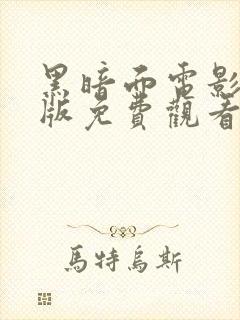 黑暗面電影
版免費觀看
馬特烏斯